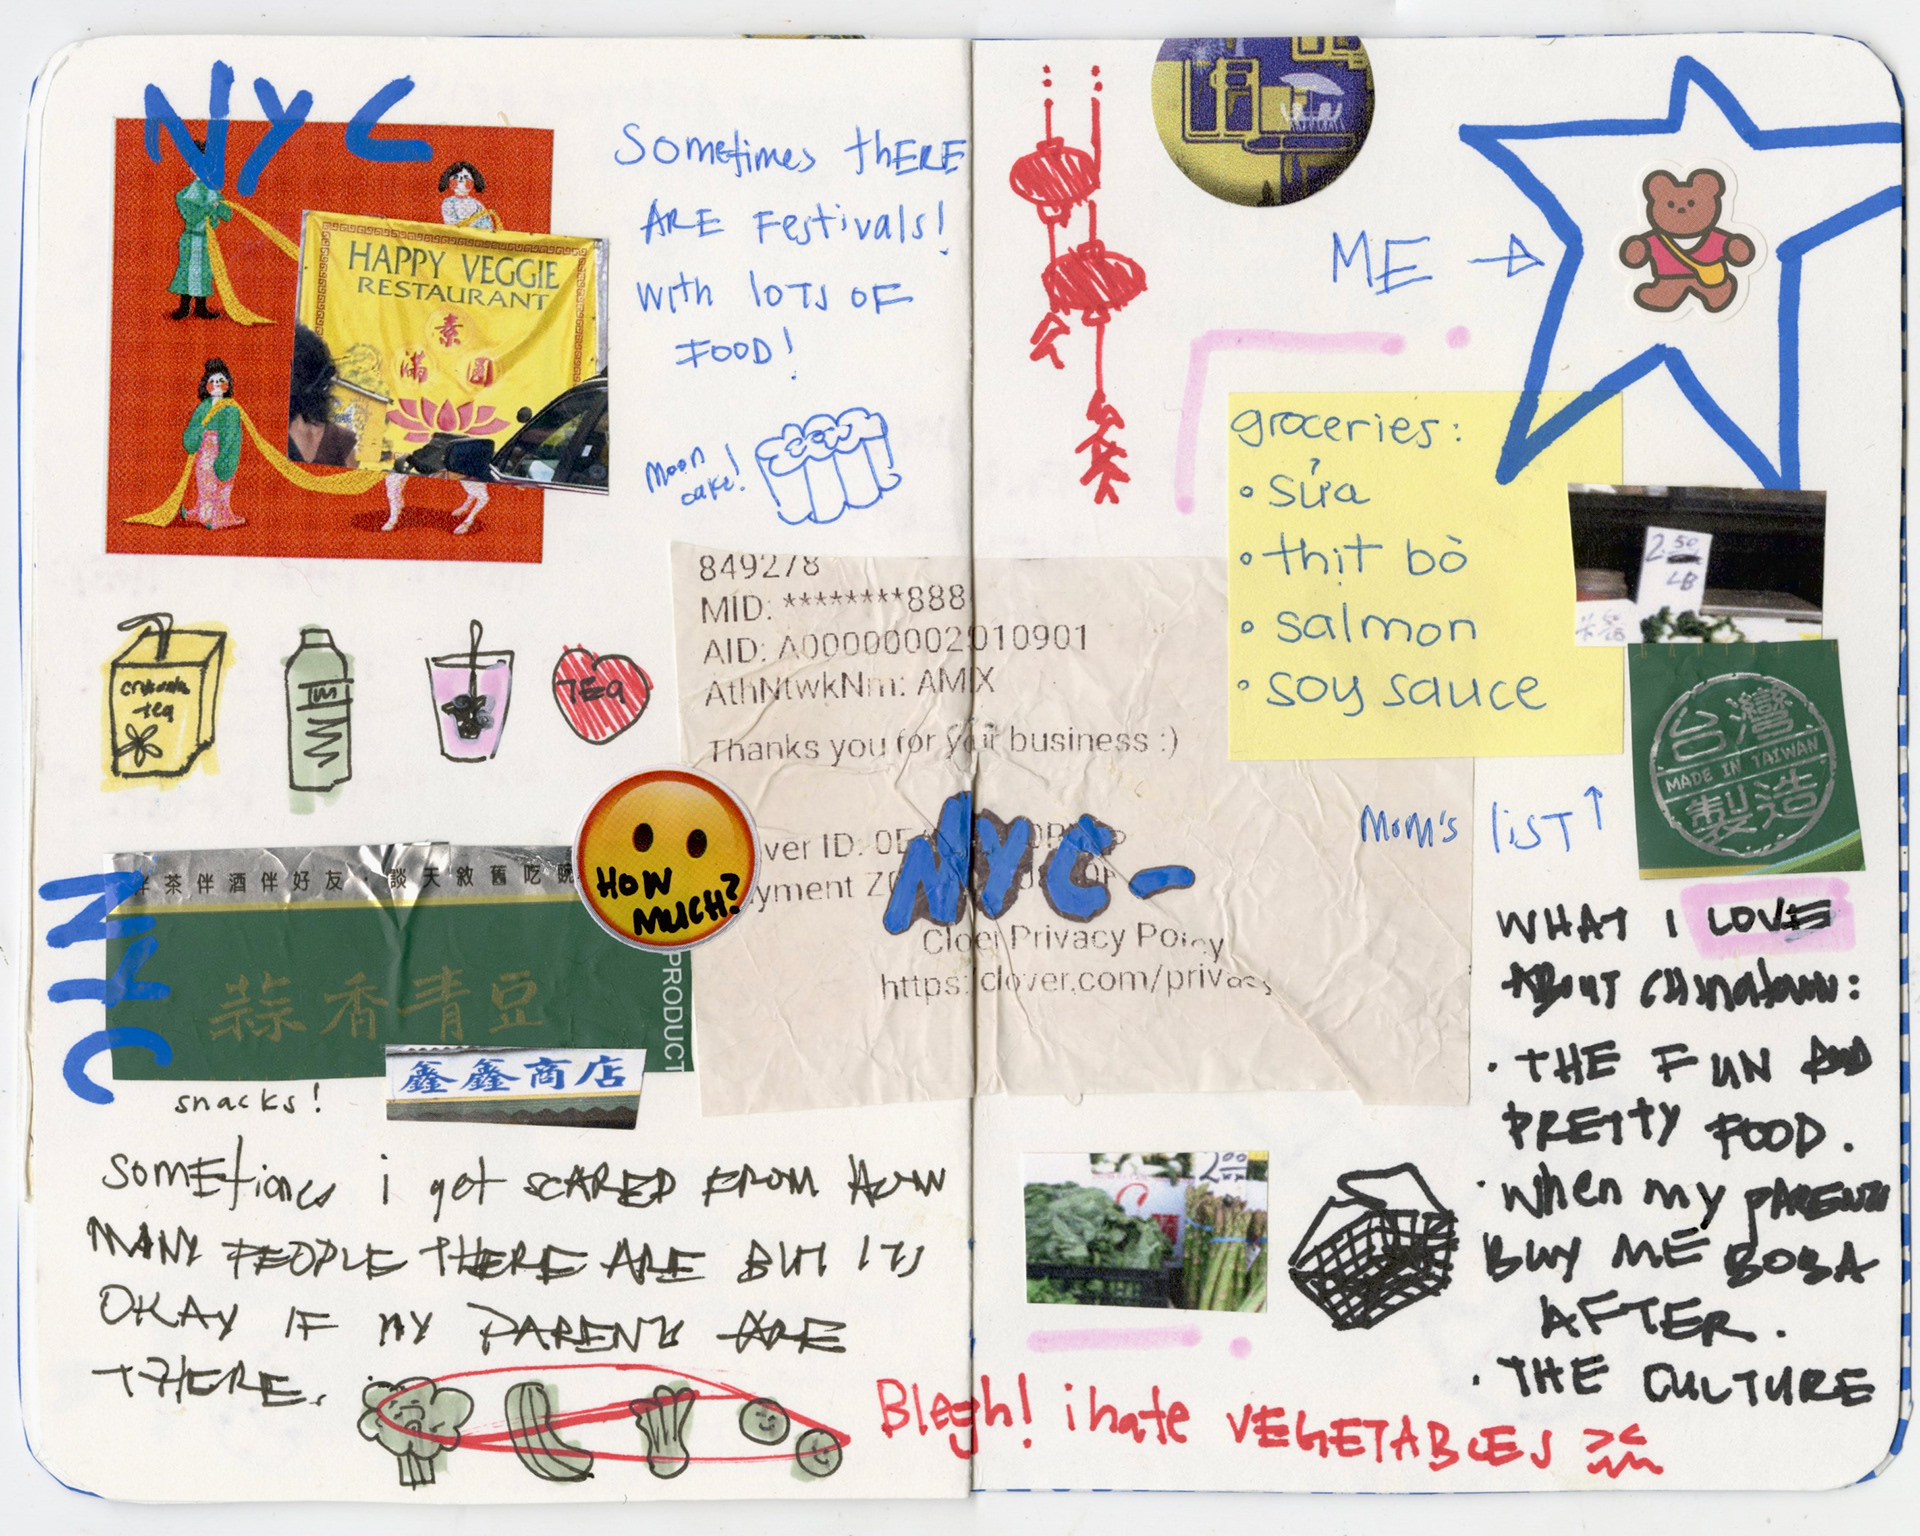 NYC
HAPPY VEGGIE
RESTAURANT
素
滿 圓
Sometimes tHERE
ARE Festivals!
with loTs OF
FOOD!
Moon
cake!
chrysanthemum
tea
TEA
伴茶伴酒伴好友·談天敘舊吃豌
蒜香青豆
PRODUCT
NYC
snacks!
鑫鑫商店
HOW
MUCH?
SOMEtimes i get SCARED FROM HOW
MANY PEOPLE THERE ARE BUT ITS
OKAY IF MY PARENTS ARE
THERE.
849278
MID: ********888
AID: A00000002010901
AthNtwkNm: AMEX
Thanks you for your business :)
ver ID: 0E
yment Z
Clover Privacy Policy
https://clover.com/privacy
NYC-
ME →
groceries:
• sửa
• thịt bò
• salmon
• soy sauce
Mom's liST ↑
2.50
LB
台灣
MADE IN TAIWAN
製造
WHAT I LOVE
ABOUT CHinatown:
• THE FUN AND
PRETTY FOOD.
• When my PARENTS
BUY ME BOBA
AFTER.
• THE CULTURE
2.00
Blegh! i hate VEGETABLES